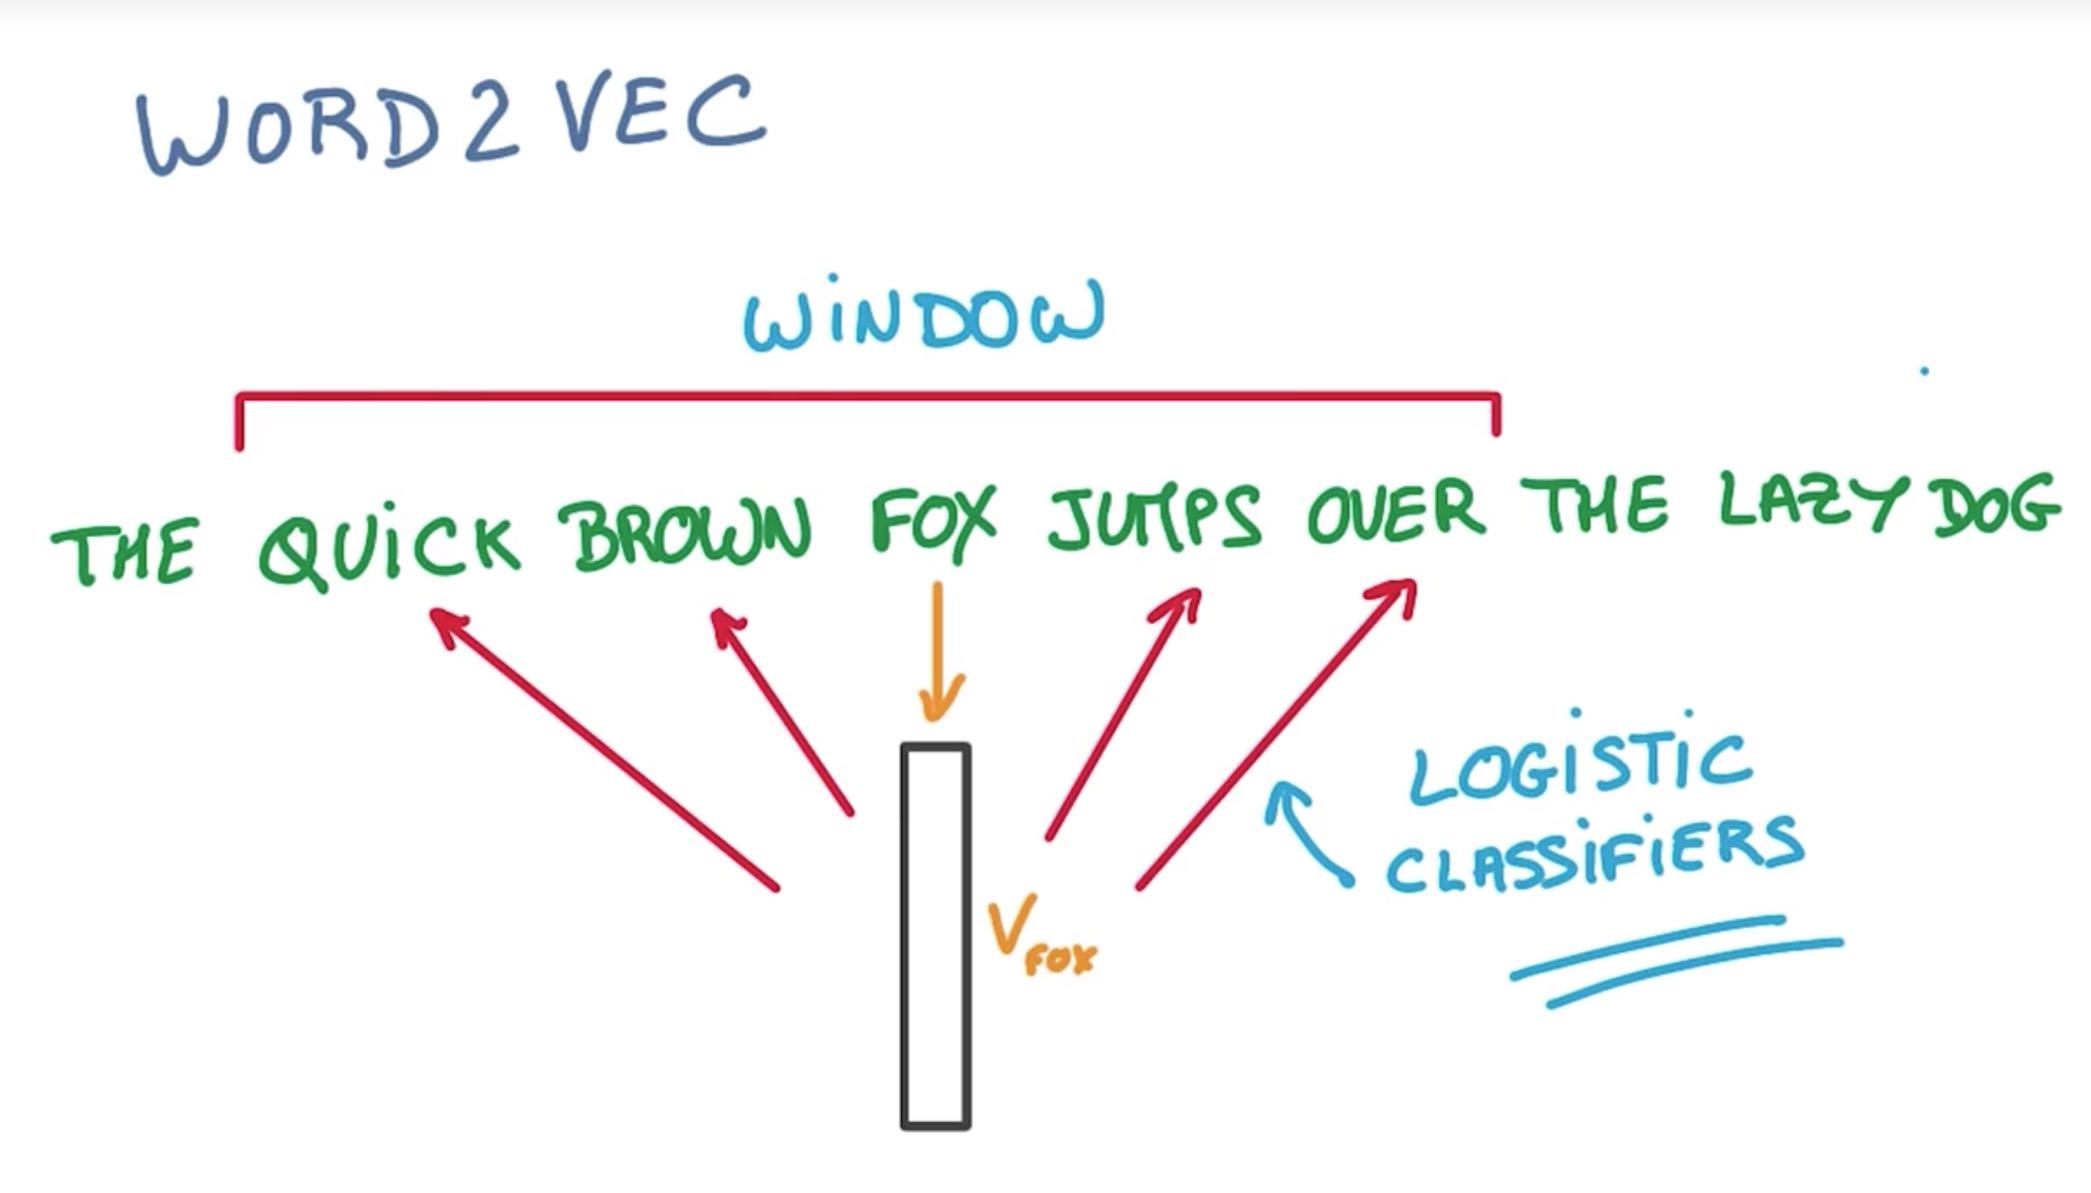 WORD2VEC
WiNDOW
THE QUiCK BROWN FOX JUMPS OVER THE LAZY DOG
LOGiSTiC
CLASSiFiERS
VFOX